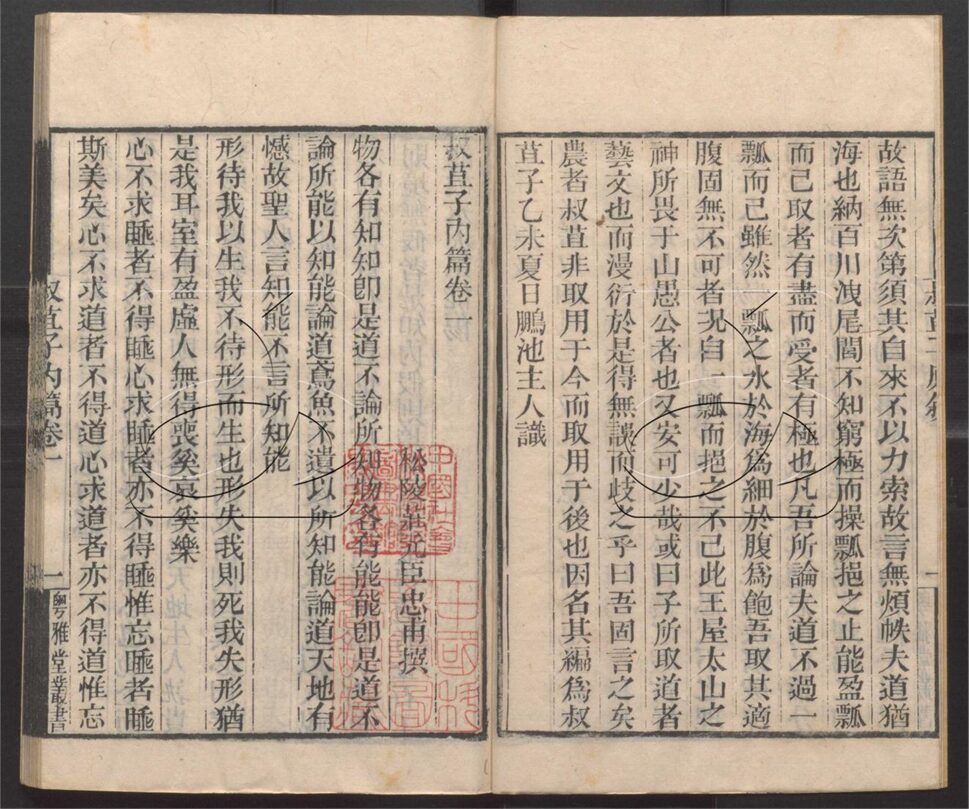 故語無次第須其自來不以力索故言無煩帙夫道猶
海也納百川洩尾閭不知窮極而操瓢挹之止能盈瓢
而已取者有盡而受者有極也凡吾所論夫道不過一
瓢而已雖然一瓢之水於海為細於腹為飽吾取其適
腹固無不可者況自一瓢而挹之不已此王屋太山之
神所畏于山愚公者也又安可少哉或曰子所取道者
藝文也而漫衍於是得無談而歧之乎曰吾固言之矣
農者叔苴非取用于今而取用于後也因名其編為叔
苴子乙未夏日鵬池主人識
叔苴子內篇卷一
松陵莊元臣忠甫撰
物各有知知卽是道不論所知物各有能能卽是道不
論所能以知能論道鳶魚不遺以所知能論道天地有
憾故聖人言知能不言所知能
形待我以生我不待形而生也形失我則死我失形猶
是我耳室有盈虛人無得喪奚哀奚樂
心不求睡者不得睡心求睡者亦不得睡惟忘睡者睡
斯美矣心不求道者不得道心求道者亦不得道惟忘
叔苴子內篇卷一
一
粵雅堂叢書